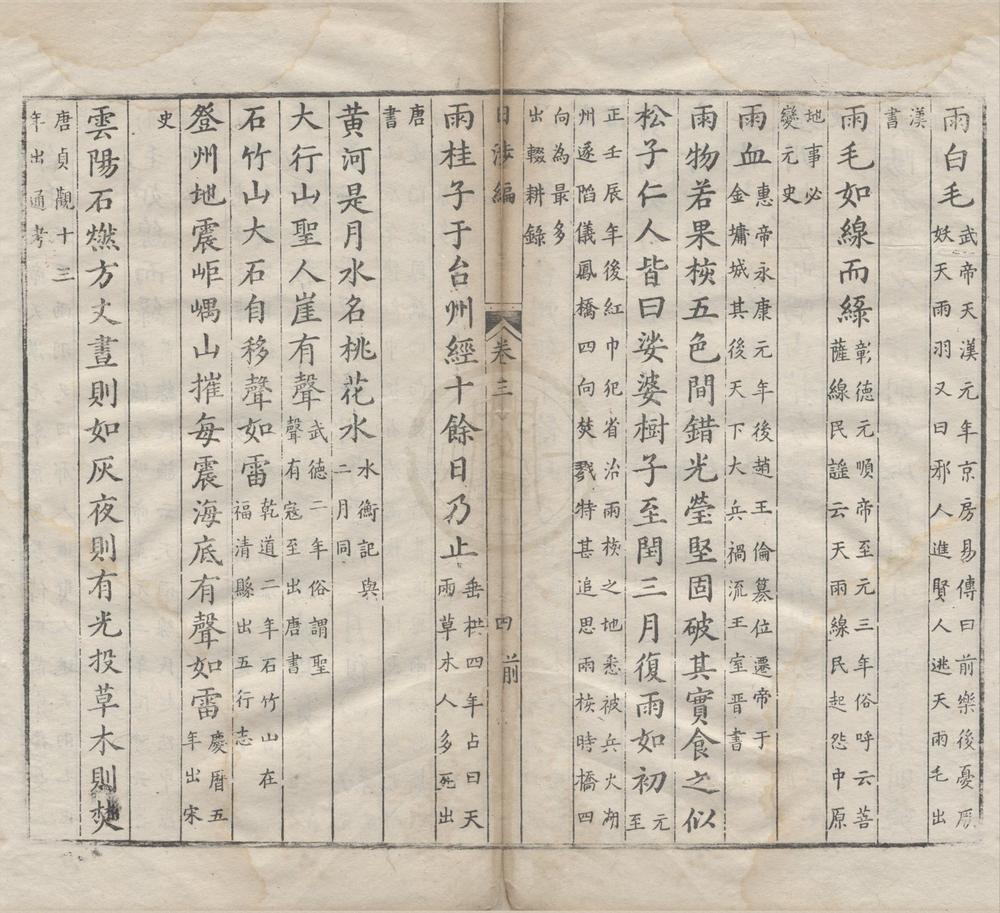 雨白毛武帝天漢元年京房易傳曰前樂後憂厥妖天雨羽又曰邪人進賢人逃天雨毛出
漢書
雨毛如線而綠彰德元順帝至元三年俗呼云菩薩線民謡云天雨線民起怨中原
地事必變元史
雨血惠帝永康元年後趙王倫簒位遷帝于金墉城其後天下大兵禍流王室晋書
雨物若果核五色間錯光瑩堅固破其實食之似
松子仁人皆曰娑婆樹子至閏三月復雨如初元至
正壬辰年後紅巾犯省治雨核之地悉被兵火湖州逐陷儀鳳橋四向焚戮特甚追思雨核時橋四
向為最多出輟耕錄
日涉編 卷三 四 前
雨桂子于台州經十餘日乃止垂拱四年占曰天雨草木人多死出
唐書
黄河是月水名桃花水水衡記與二月同
大行山聖人崖有聲武德二年俗謂聖聲有寇至出唐書
石竹山大石自移聲如雷乾道二年石竹山在福清縣出五行志
登州地震岠嵎山摧每震海底有聲如雷慶曆五年出宋
史
雲陽石燃方丈晝則如灰夜則有光投草木則焚
唐貞觀十三年出通考